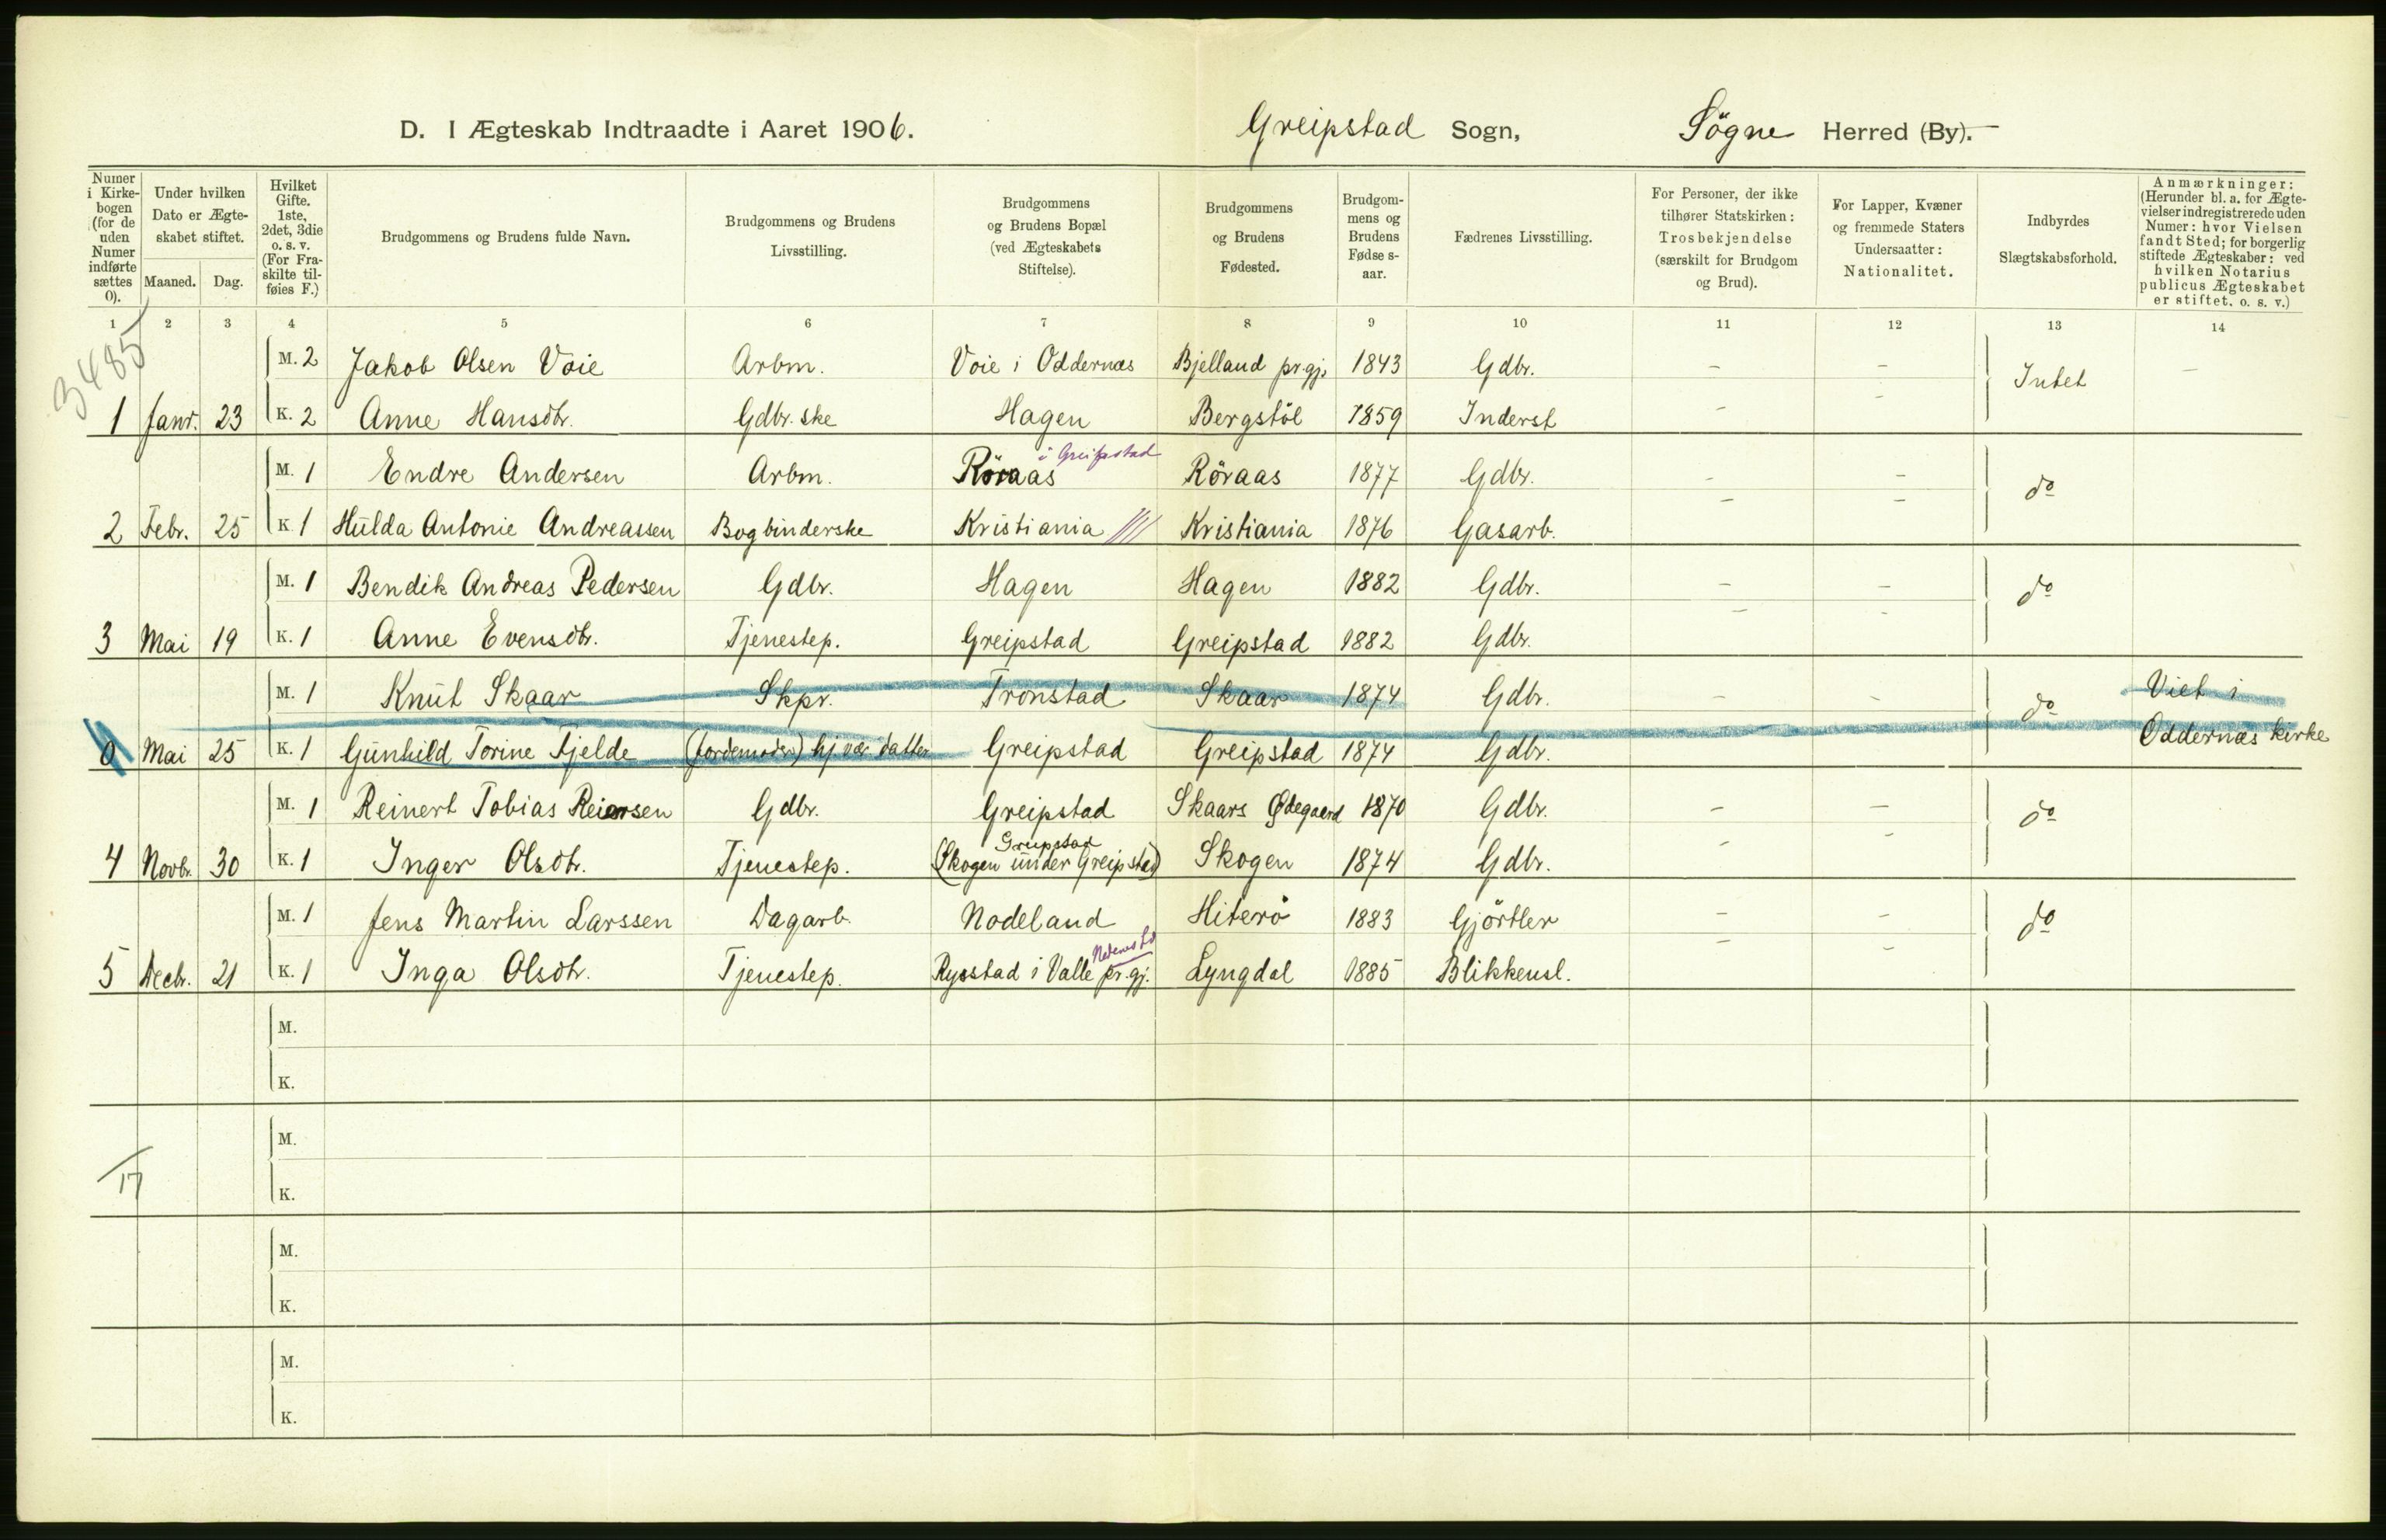 D. I Ægteskab Indtraadte i Aaret 1906. Greipstad Sogn, Søgne Herred (By).
Numer i Kirkebogen (for de uden Numer indførte sættes 0). | Under hvilken Dato er Ægteskabet stiftet. Maaned. Dag. | Hvilket Gifte. 1ste, 2det, 3die o. s. v. (For Fraskilte tilføies F.) | Brudgommens og Brudens fulde Navn. | Brudgommens og Brudens Livsstilling. | Brudgommens og Brudens Bopæl (ved Ægteskabets Stiftelse). | Brudgommens og Brudens Fødested. | Brudgommens og Brudens Fødselsaar. | Fædrenes Livsstilling. | For Personer, der ikke tilhører Statskirken: Trosbekjendelse (særskilt for Brudgom og Brud). | For Lapper, Kvæner og fremmede Staters Undersaatter: Nationalitet. | Indbyrdes Slægtskabsforhold. | Anmærkninger: (Herunder bl. a. for Ægtevielser indregistrerede uden Numer: hvor Vielsen fandt Sted; for borgerlig stiftede Ægteskaber: ved hvilken Notarius publicus Ægteskabet er stiftet. o. s. v.)
1 2 3 4 5 6 7 8 9 10 11 12 13 14
3485
M. 2 Jakob Olsen Voie Arbm. Voie i Oddernæs Bjelland pr.gj. 1843 Gdbr. - - Intet -
1 Janr. 23 K. 2 Anne Hansdtr. Gdbr. ske Hagen Bergstöl 1859 Inderst - -
i Greipstad
M. 1 Endre Andersen Arbm. Röraas Röraas 1877 Gdbr. - - do
2 Febr. 25 K. 1 Hulda Antonie Andreassen Bogbinderske Kristiania Kristiania 1876 Gasarb. - -
M. 1 Bendik Andreas Pedersen Gdbr. Hagen Hagen 1882 Gdbr. - - do
3 Mai 19 K. 1 Anne Evensdtr. Tjenestep. Greipstad Greipstad 1882 Gdbr. - -
M. 1 Knut Skaar Skpr. Tronstad Skaar 1874 Gdbr. - - do Viet i
0 Mai 25 K. 1 Gunhild Torine Fjelde (Jordemoder) hj. vær. datter Greipstad Greipstad 1874 Gdbr. Oddernæs kirke
M. 1 Reinert Tobias Reiersen Gdbr. Greipstad Skaars Ødegaard 1870 Gdbr. - - do
Greipstad
4 Novbr. 30 K. 1 Inger Olsdtr. Tjenestep. (Skogen under Greipstad) Skogen 1874 Gdbr. - -
M. 1 Jens Martin Larssen Dagarb. Nodeland Hiterö 1883 Gjörtler - - do
5 Decbr. 21 K. 1 Inga Olsdtr. Tjenestep. Rysstad i Valle pr.gj. Lyngdal 1885 Blikkensl. - -
M.
K.
M.
17
K.
M.
K.
M.
K.